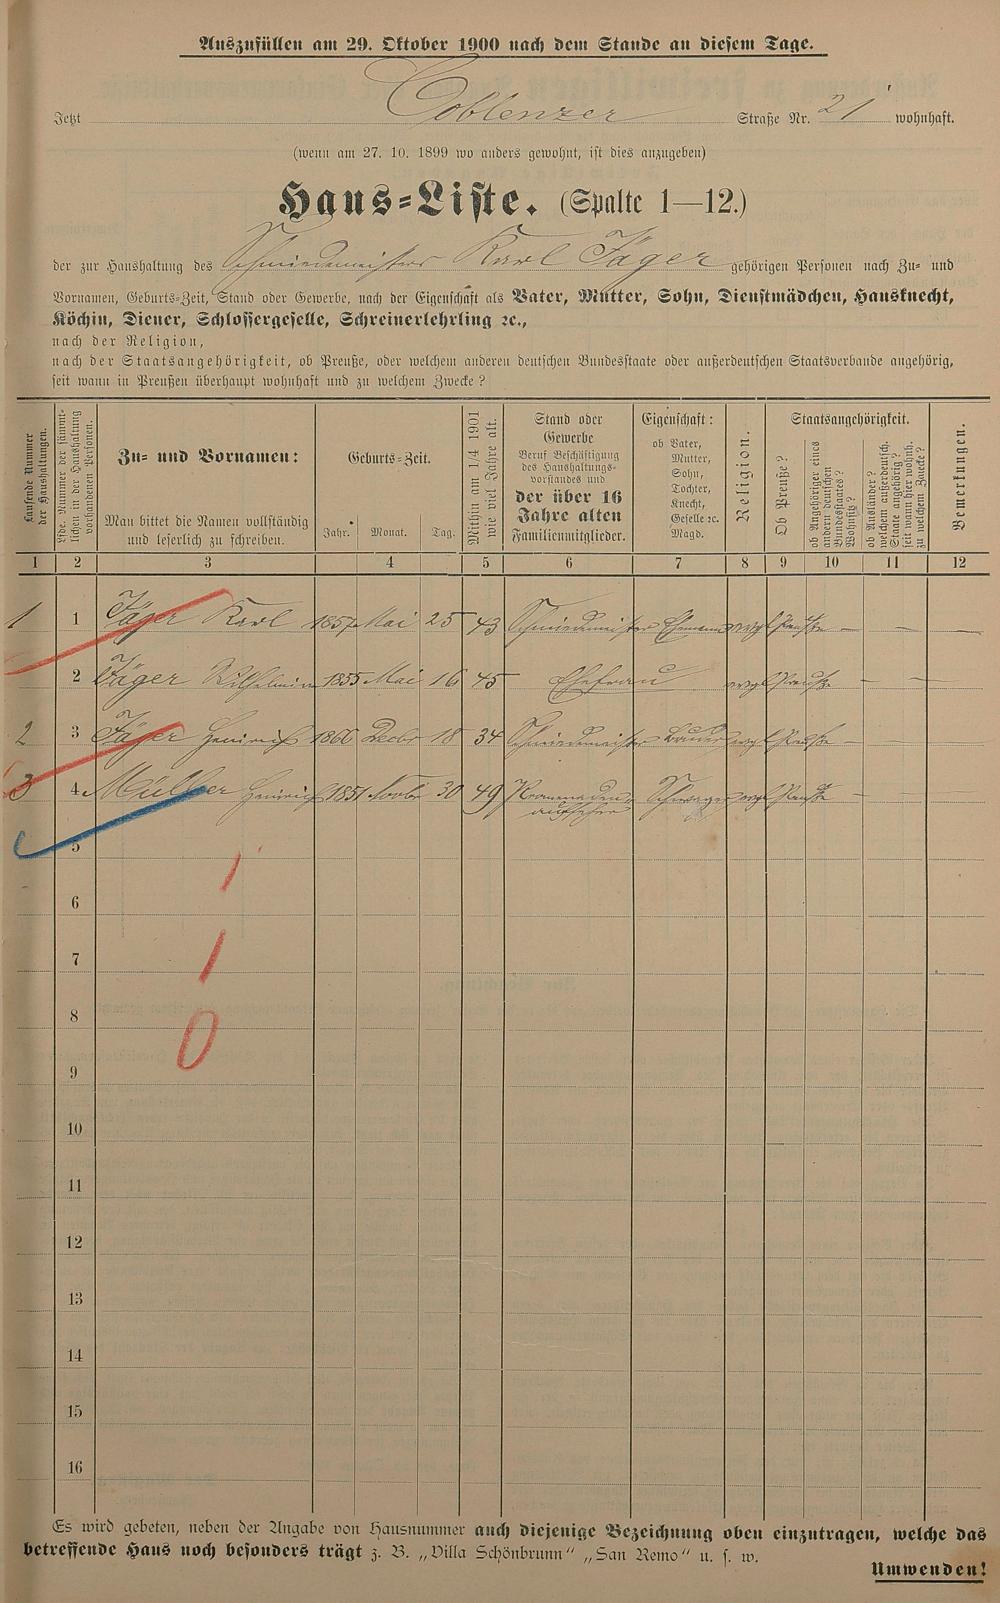 Auszufüllen am 29. Oktober 1900 nach dem Stande an diesem Tage.
Jetzt Coblenzer Straße Nr. 21 wohnhaft.
(wenn am 27. 10. 1899 wo anders gewohnt, ist dies anzugeben)
Haus-Liste. (Spalte 1—12.)
der zur Haushaltung des Schmiedemeisters Karl Jäger gehörigen Personen nach Zu- und
Vornamen, Geburts-Zeit, Stand oder Gewerbe, nach der Eigenschaft als Vater, Mutter, Sohn, Dienstmädchen, Hausknecht,
Köchin, Diener, Schlossergeselle, Schreinerlehrling ꝛc.,
nach der Religion,
nach der Staatsangehörigkeit, ob Preuße, oder welchem anderen deutschen Bundesstaate oder außerdeutschen Staatsverbande angehörig,
seit wann in Preußen überhaupt wohnhaft und zu welchem Zwecke?
Laufende Nummer
der Haushaltungen.
Lfde. Nummer der sämmt-
lichen in der Haushaltung
vorhandenen Personen.
Zu- und Vornamen:
Man bittet die Namen vollständig
und leserlich zu schreiben.
Geburts-Zeit.
Jahr. Monat. Tag.
Mithin am 1/4 1901
wie viel Jahre alt.
Stand oder
Gewerbe
Beruf Beschäftigung
des Haushaltungs-
vorstandes und
der über 16
Jahre alten
Familienmitglieder.
Eigenschaft:
ob Vater,
Mutter,
Sohn,
Tochter,
Knecht,
Geselle ꝛc.
Magd.
Religion.
Staatsangehörigkeit.
Ob Preuße?
ob Angehöriger eines
andern deutschen
Bundesstaates?
Wohnsitz?
ob Ausländer?
welchem außerdeutsch.
Staate angehörig?
seit wann hier wohnh.
zu welchem Zwecke?
Bemerkungen.
1 2 3 4 5 6 7 8 9 10 11 12
1 1 Jäger Karl 1857 Mai 25 43 Schmiedemeister Ehemann evgl Preuße — — —
2 Jäger Wilhelmine 1855 Mai 16 45 Ehefrau evgl Preuße — —
2 3 Jäger Heinrich 1866 Decbr 18 34 Schmiedemeister Bruder evgl Preuße — — —
3 4 Müller Heinrich 1851 Novbr 30 49 Promenaden- Schwager evgl Preuße — — —
aufseher
5
6
7
8
9
10
11
12
13
14
15
16
1
1
0
Es wird gebeten, neben der Angabe von Hausnummer auch diejenige Bezeichnung oben einzutragen, welche das
betreffende Haus noch besonders trägt z. B. „Villa Schönbrunn“ „San Remo“ u. s. w.
Umwenden!